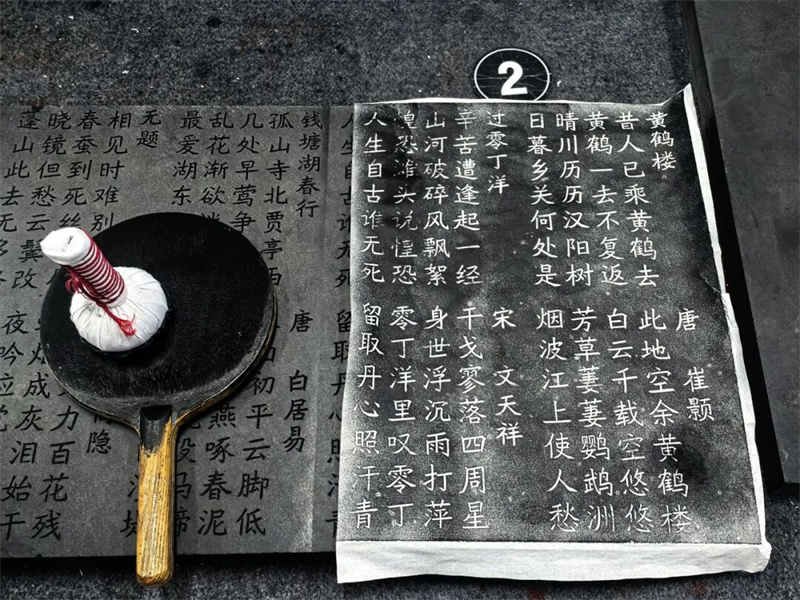 2
黄鹤楼 唐 崔颢
昔人已乘黄鹤去 此地空余黄鹤楼
黄鹤一去不复返 白云千载空悠悠
晴川历历汉阳树 芳草萋萋鹦鹉洲
日暮乡关何处是 烟波江上使人愁
过零丁洋 宋 文天祥
辛苦遭逢起一经 干戈寥落四周星
山河破碎风飘絮 身世浮沉雨打萍
惶恐滩头说惶恐 零丁洋里叹零丁
人生自古谁无死 留取丹心照汗青
人生自古谁无死 留取丹心照汗青
钱塘湖春行 唐 白居易
孤山寺北贾亭西 初平云脚低
几处早莺争 燕啄春泥
乱花渐欲迷 没马蹄
最爱湖东
无题 隐
相见时难别 力百花残
春蚕到死丝 成灰泪始干
晓镜但愁云鬓改 夜吟应觉
蓬山此去无多